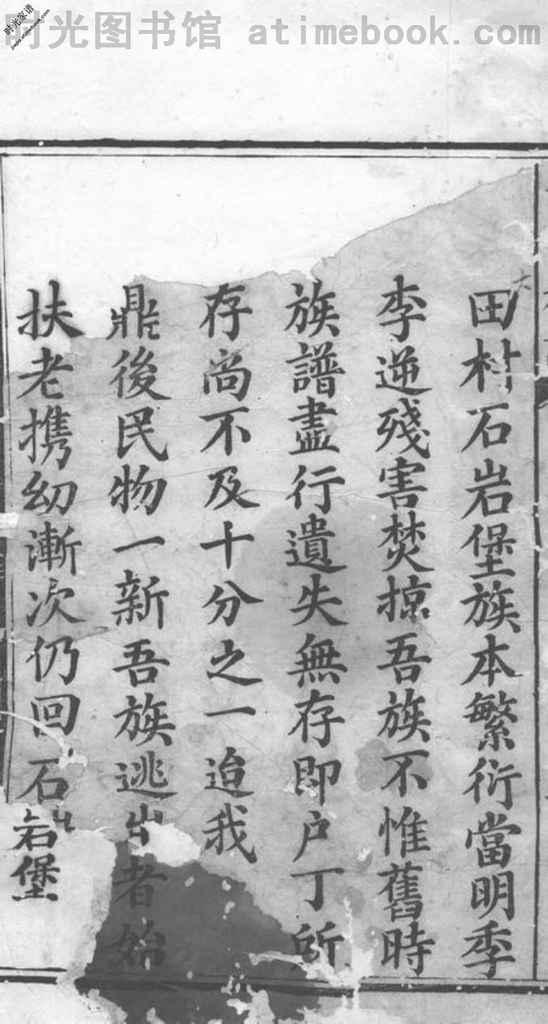 时光图书馆 atimebook.com
时光家谱
田村石岩堡族本繁衍當明季
李逆殘害焚掠吾族不惟舊時
族譜盡行遺失無存即户丁所
存尚不及十分之一迨我
鼎後民物一新吾族逃出者始
扶老携幼漸次仍回石岩堡